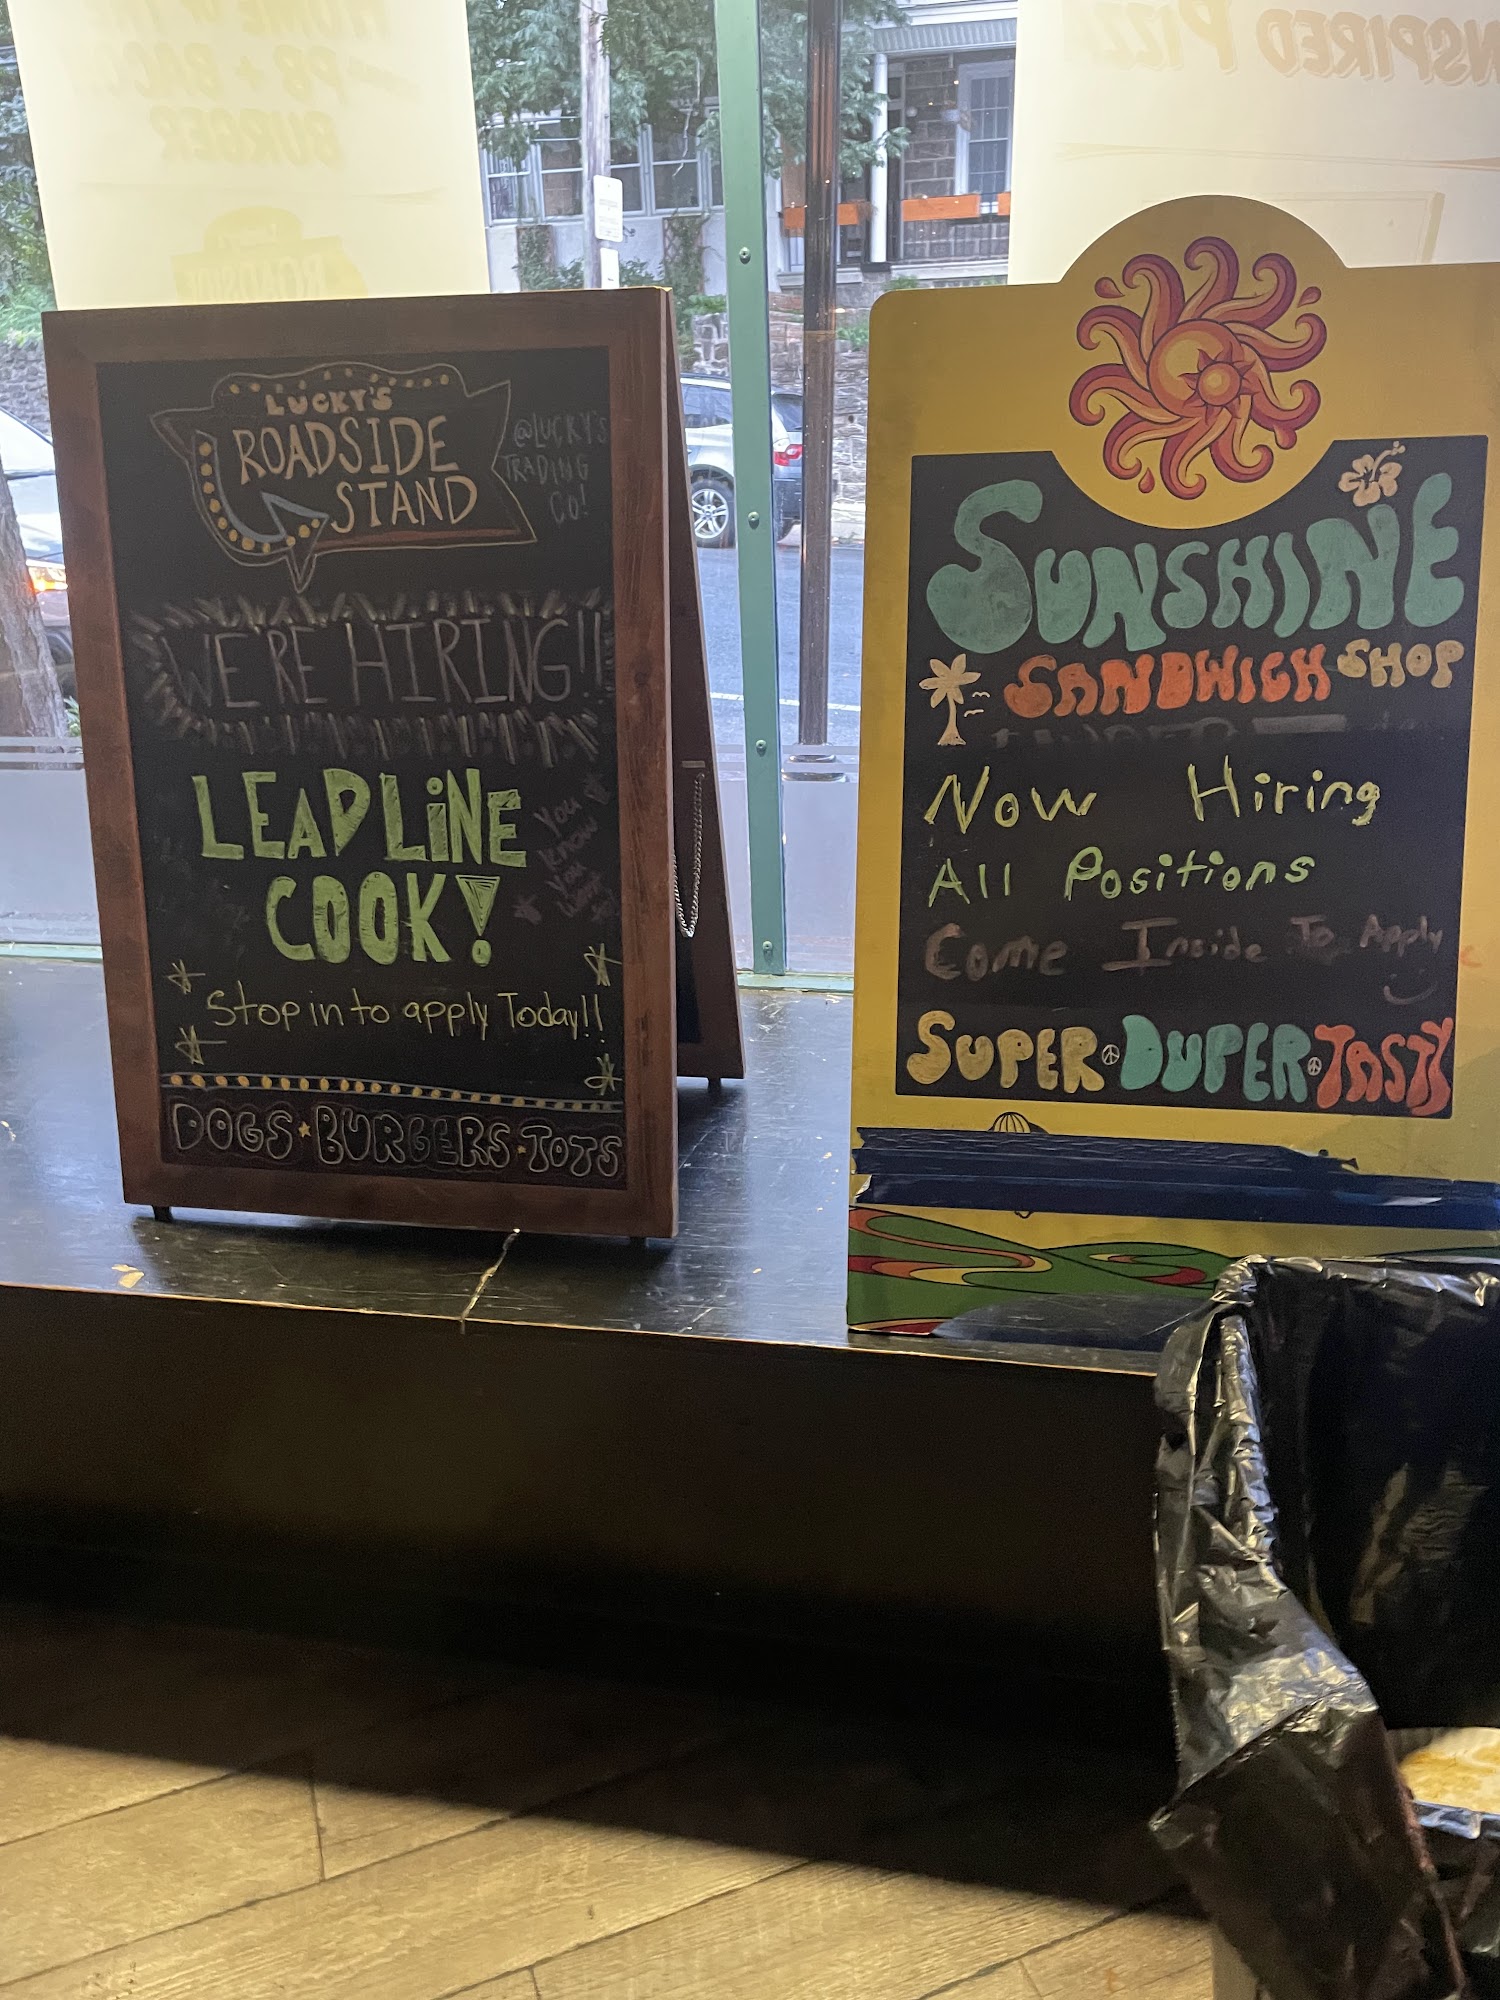 LUCKY'S
ROADSIDE
STAND
@LUCKY'S
TRADING
CO!
WE'RE HIRING!!
LEAD LINE
COOK!
You
know
you
want
to!
Stop in to apply Today!!
DOGS BURGERS TOTS
SUNSHINE
SANDWICH SHOP
Now Hiring
All Positions
Come Inside To Apply
SUPER DUPER TASTY
PB + BAC
BURGER
ROADSIDE
NSPIRED PIZZ